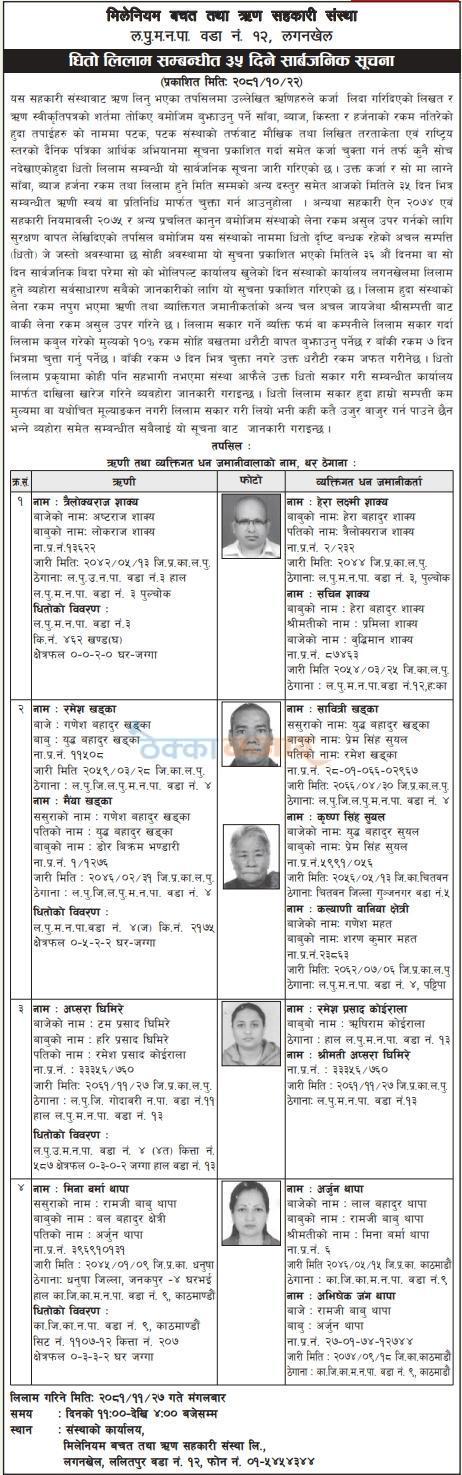 मिलेनियम बचत तथा ऋण सहकारी संस्था
ल.पु.म.न.पा. वडा नं. १२, लगनखेल
धितो लिलाम सम्बन्धीत ३५ दिने सार्बजनिक सूचना
(प्रकाशित मिति: २०८१/१०/२२)
यस सहकारी संस्थावाट ऋण लिनु भएका तपसिलमा उल्लेखित ऋणिहरुले कर्जा लिदा गरिदिएको लिखत र
ऋण स्वीकृतिपत्रको शर्तमा तोकिए बमोजिम बुझाउनु पर्ने साँवा, ब्याज, किस्ता र हर्जनाको रकम नतिरेको
हुदा तपाईहरु को नाममा पटक, पटक संस्थाको तर्फबाट मौखिक तथा लिखित तरताकेता एवं राष्ट्रिय
स्तरको दैनिक पत्रिका आर्थिक अभियानमा सूचना प्रकाशित गर्दा समेत कर्जा चुक्ता गर्न तर्फ कुनै सोच
नदेखाएकोहुदा धितो लिलाम सम्बन्धी यो सार्वजनिक सूचना जारी गरिएको छ । उक्त कर्जा र सो मा लाग्ने
साँवा, ब्याज हर्जना रकम तथा लिलाम हुने मिति सम्मको अन्य दस्तुर समेत आजको मितिले ३५ दिन भित्र
सम्बन्धीत ऋणी स्वयं वा प्रतिनिधि मार्फत चुक्ता गर्न आउनुहोला । अन्यथा सहकारी ऐन २०७४ एवं
सहकारी नियमावली २०७५ र अन्य प्रचलित कानुन वमोजिम संस्थाको लेना रकम असुल उपर गर्नको लागि
सुरक्षण बापत लेखिदिएको तपसिल वमोजिम यस संस्थाको नाममा धितो दृष्टि बन्धक रहेको अचल सम्पत्ति
(धितो) जे जस्तो अवस्थामा छ सोही अवस्थामा यो सुचना प्रशित भएको मितिले ३६ औं दिनमा वा सो
दिन सार्वजनिक विदा परेमा सो को भोलिपल्ट कार्यालय खुलेको दिन संस्थाको कार्यालय लगनखेलमा लिलाम
हुने व्यहोरा सर्वसाधारण सबैको जानकारीको लागि यो सुचना प्रकाशित गरिएको छ । लिलाम हुदा संस्थाको
लेना रकम नपुग भएमा ऋणी तथा ब्याक्तिगत जमानीकर्ताको अन्य चल अचल जायजेथा श्रीसम्पत्ती बाट
बाकी लेना रकम असुल उपर गरिने छ । लिलाम सकार गर्ने व्यक्ति फर्म वा कम्पनीले लिलाम सकार गर्दा
लिलाम कबुल गरेको मुल्यको १०% रकम सोहि बखतमा धरौटी बापत बुझाउनु पर्नेछ र बाँकी रकम ७ दिन
भित्रमा चुक्ता गर्नु पर्नेछ । बाँकी रकम ७ दिन भित्र चुक्ता नगरे उक्त धरौटी रकम जफत गरीनेछ । धितो
लिलाम प्रकृयामा कोही पनि सहभागी नभएमा संस्था आफैले उक्त धितो सकार गरी सम्बन्धीत कार्यालय
मार्फत दाखिला खारेज गरिने व्यवहोरा जानकारी गराइन्छ । धितो लिलाम सकार हुदा हाम्रो सम्पत्ती कम
मुल्यमा वा यथोचित मूल्याङकन नगरी लिलाम सकार गरी लियो भनी कही कतै उजुर बाजुर गर्न पाउने छैन
भन्ने व्यहोरा समेत सम्बन्धीत सबैलाई यो सूचना बाट जानकारी गराइन्छ ।
तपसिल :
ऋणी तथा व्यक्तिगत धन जमानीवालाको नाम, थर ठेगाना :
क्र.सं. ऋणी फोटो व्यक्तिगत धन जमानीकर्ता
१ नाम : त्रैलोक्यराज शाक्य
बाजेको नाम: अष्टराज शाक्य
बाबुको नाम: लोकराज शाक्य
ना.प्र.नं.१३६२२
जारी मिति : २०४२/०५/१३ जि.प्र.का.ल.पु.
ठेगाना : ल.पु.उ.न.पा. वडा नं.३ हाल
ल.पु.म.न.पा. वडा नं. ३ पुल्चोक
धितोको विवरण :
ल.पु.म.न.पा. वडा नं.३
कि.नं. ४६२ खण्ड(घ)
क्षेत्रफल ०-०-२-० घर-जग्गा
नाम : हेरा लक्ष्मी शाक्य
बाबुको नाम: हेरा बहादुर शाक्य
पतिको नाम: त्रैलोक्यराज शाक्य
ना.प्र.नं. २/२३२
जारी मिति : २०४४ जि.प्र.का.ल.पु.
ठेगाना : ल.पु.म.न.पा. वडा नं. ३, पुल्चोक
नाम : सचिन शाक्य
बाबुको नाम : हेरा बहादुर शाक्य
श्रीमतीको नाम : प्रमिला शाक्य
बाजेको नाम : बुद्धिमान शाक्य
ना.प्र.नं. ८७४६३
जारी मिति २०५४/०३/२५ जि.का.ल.पु.
ठेगाना : ल.पु.म.न.पा.वडा नं.१२,ह:का
२ नाम : रमेश खड्का
बाजे : गणेश बहादुर खड्का
बाबु : युद्ध बहादुर खड्का
ना.प्र.नं. ११५०८
जारी मिति २०५९/०३/२८ जि.का.ल.पु.
ठेगाना : ल.पु.जि.ल.पु.म.न.पा. वडा नं. ४
नाम : मैया खड्का
ससुराको नाम : गणेश बहादुर खड्का
पतिको नाम : युद्ध बहादुर खड्का
बाबुको नाम : डोर विक्रम भण्डारी
ना.प्र.नं. १/१२७६
जारी मिति : २०४६/०२/३१ जि.का.ल.पु.
ठेगाना : ल.पु.जि.ल.पु.म.न.पा. वडा नं. ४
धितोको विवरण :
ल.पु.म.न.पा.वडा नं. ४(ज) कि.नं. २१७५
क्षेत्रफल ०-५-२-२ घर-जग्गा
ठेक्का बजार
नाम : सावित्री खड्का
ससुराको नाम: युद्ध बहादुर खड्का
बाबुको नाम: प्रेम सिंह सुयल
पतिको नाम: रमेश खड्का
ना.प्र.नं. २८-०१-०६६-०२९६७
जारी मिति : २०६६/०४/३० जि.का.ल.पु.
ठेगाना : ल.पु.जि.ल.पु.म.न.पा. वडा नं. ४
नाम : कृष्ण सिंह सुयल
बाजेको नाम: युद्ध बहादुर सुयल
बाबुको नाम: प्रेम सिंह सुयल
ना.प्र.नं.५९९१/०५६
जारी मिति : २०५६/०५/१३ जि.का.चितवन
ठेगाना: चितवन जिल्ला गुञ्जनगर वडा नं.५
नाम : कल्याणी वानिया क्षेत्री
बाजेको नाम: गणेश महत
बाबुको नाम: शरण कुमार महत
ना.प्र.नं.२३८६३
जारी मिति: २०६२/०७/०६ जि.प्र.का.ल.पु
ठेगाना: ल.पु.म.न.पा. वडा नं. ४, पट्टिपा
३ नाम : अप्सरा घिमिरे
बाजेको नाम : टम प्रसाद घिमिरे
बाबुको नाम : हरि प्रसाद घिमिरे
पतिको नाम : रमेश प्रसाद कोईराला
ना.प्र.नं. : ३३३५६/७६०
जारी मिति: २०६१/११/२७ जि.प्र.का.ल.पु.
ठेगाना : ल.पु.जि. गोदावरी न.पा. वडा नं.११
हाल ल.पु.म.न.पा. वडा नं. १३
धितोको विवरण :
ल.पु.उ.म.न.पा. वडा नं. ४ (४त) कित्ता नं.
५८७ क्षेत्रफल ०-३-०-२ जग्गा हाल वडा नं. १३
नाम : रमेश प्रसाद कोईराला
बाबुबो नाम : ऋषिराम कोईराला
ठेगाना : हाल ल.पु.म.न.पा. वडा नं. १३
नाम : श्रीमती अप्सरा घिमिरे
ना.प्र.नं. : ३३३५६/७६०
जारी मिति : २०६१/११/२७ जि.प्र.का.ल.पु.
ठेगाना : ल.पु.म.न.पा. वडा नं.१३
४ नाम : मिना बर्मा थापा
ससुराको नाम : रामजी बाबु थापा
बाबुको नाम : बल बहादुर क्षेत्री
पतिको नाम : अर्जुन थापा
ना.प्र.नं. ३९६९१०१३१
जारी मिति : २०४५/०१/०९ जि.प्र.का. धनुषा
ठेगाना: धनुषा जिल्ला, जनकपुर -४ घरभई
हाल का.जि.का.म.न.पा. वडा नं. ९, काठमाण्डौं
धितोको विवरण:
का.जि.का.न.पा. वडा नं. ९, काठमाण्डौं
सिट नं. ११०७-१२ कित्ता नं. २०७
क्षेत्रफल ०-३-३-२ घर जग्गा
नाम : अर्जुन थापा
बाजेको नाम : लाल बहादुर थापा
बाबुको नाम : रामजी बाबु थापा
श्रीमतीको नाम : मिना बर्मा थापा
ना.प्र.नं. ६
जारी मिति २०४६/०५/१५ जि.प्र.का. काठमाडौं
ठेगाना : का.जि.का.म.न.पा. वडा नं.९
नाम : अभिषेक जंग थापा
बाजे : रामजी बाबु थापा
बाबु : अर्जुन थापा
ना.प्र.नं. २७-०१-७४-१२७४४
जारी मिति : २०७४/०९/१८ जि.का.काठमाडौं
ठेगाना : का.जि.का.म.न.पा. वडा नं. ९, काठमाडौं
लिलाम गरिने मिति: २०८१/११/२७ गते मंगलबार
समय : दिनको ११:००-देखि ४:०० बजेसम्म
स्थान : संस्थाको कार्यालय,
मिलेनियम बचत तथा ऋण सहकारी संस्था लि.,
लगनखेल, ललितपुर वडा नं. १२, फोन नं. ०१-५४५४३४४